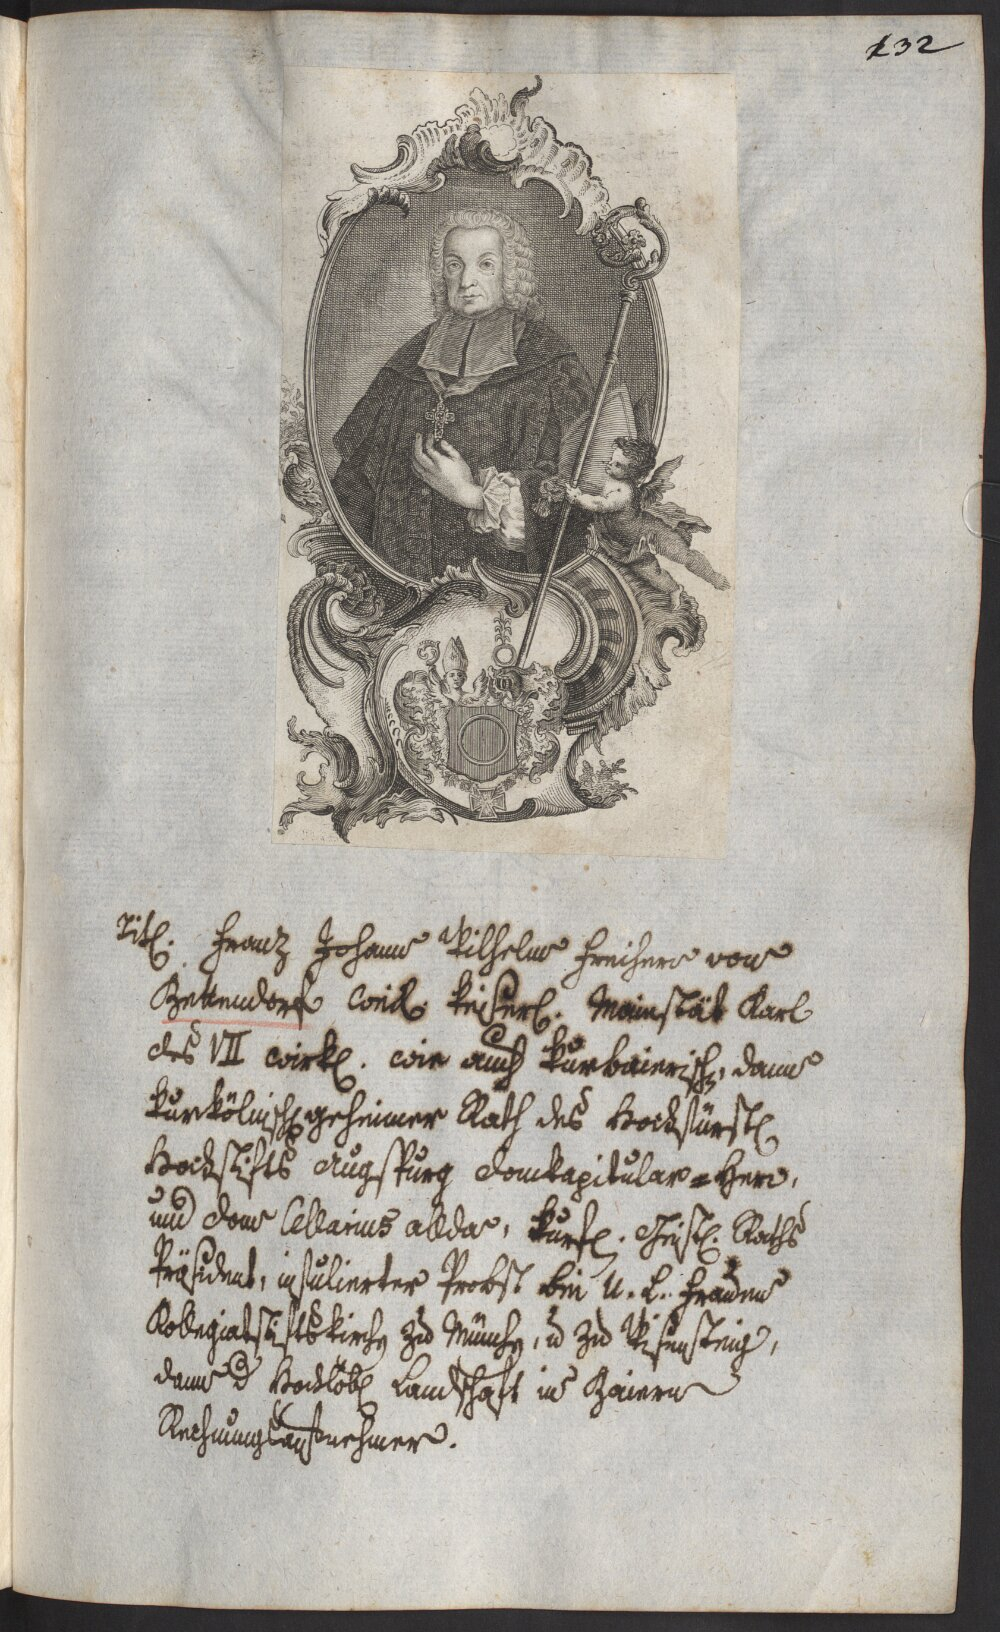 132
Titl. Franz Johann Wilhelm Freiherr von
Bettendorf weil. keiserl. Mainstät Karl
des VII wirkl. wie auch kurbaierisch, dann
kurkölnisch geheimer Rath des Hochfürstl
Hochstifts Augspurg Domkapitular=Herr,
und dom Cellarius allda, kurfl. Geistl. Raths
Präsident, insulierter Probst bei U. L. Frauen
Kollegiatstiftskirche zu München, u zu Wisensteig,
dann d Hochlöbl Landschaft in Baiern
Rechnungsaufnehmer.